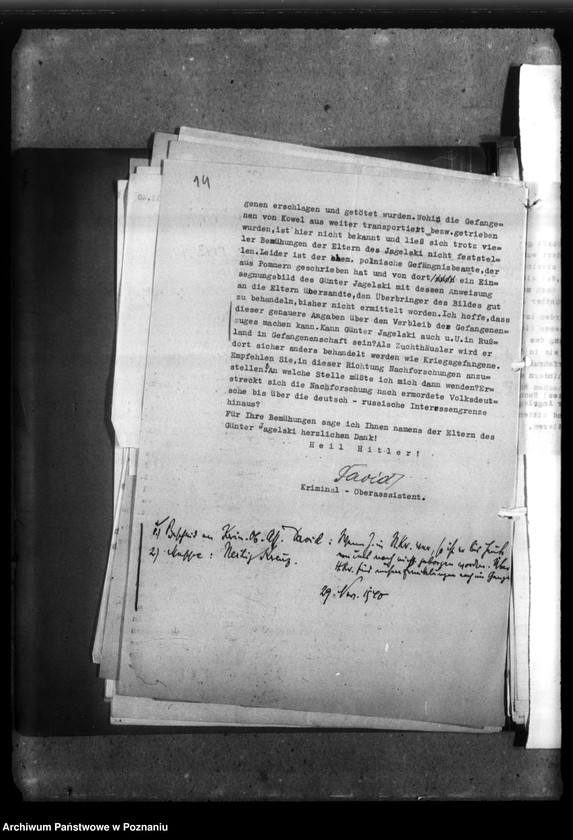 14
genen erschlagen und getötet wurden. Wohin die Gefange=
nen von Kowel aus weiter transportiert bezw. getrieben
wurden, ist hier nicht bekannt und ließ sich trotz vie=
ler Bemühungen der Eltern des Jagelski nicht feststel=
len. Leider ist der ehem. polnische Gefängnisbeamte, der
aus Pommern geschrieben hat und von dort ein Ein=
segnungsbild des Günter Jagelski mit dessen Anweisung
an die Eltern übersandte, den Überbringer des Bildes gut
zu behandeln, bisher nicht ermittelt worden. Ich hoffe, dass
dieser genauere Angaben über den Verbleib des Gefangenen=
zuges machen kann. Kann Günter Jagelski auch u.U. in Ruß=
land in Gefangenenschaft sein? Als Zuchthäusler wird er
dort sicher anders behandelt werden wie Kriegsgefangene.
Empfehlen Sie, in dieser Richtung Nachforschungen anzu=
stellen? An welche Stelle müßte ich mich dann wenden? Er=
streckt sich die Nachforschung nach ermordete Volksdeut=
sche bis über die deutsch - russische Interessengrenze
hinaus?
Für Ihre Bemühungen sage ich Ihnen namens der Eltern des
Günter Jagelski herzlichen Dank!
Heil Hitler!
David
Kriminal - Oberassistent.
1) Bescheid an Krim. Ob. Ass. David: Wenn J. in
2) Mappe: Heilig Kreuz.
29. Nov. 1940
Archiwum Państwowe w Poznaniu